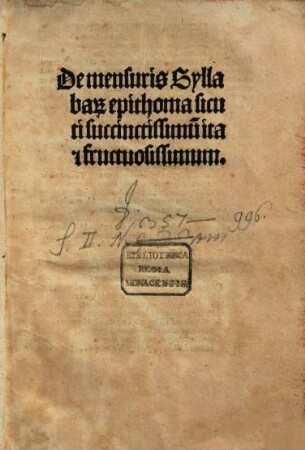 De mensuris Sylla
baꝝ epithoma sicu
ti succinctissimū ita
⁊ fructuosissimum.
996.
BIBLIOTHECA
REGIA
MONACENSIS